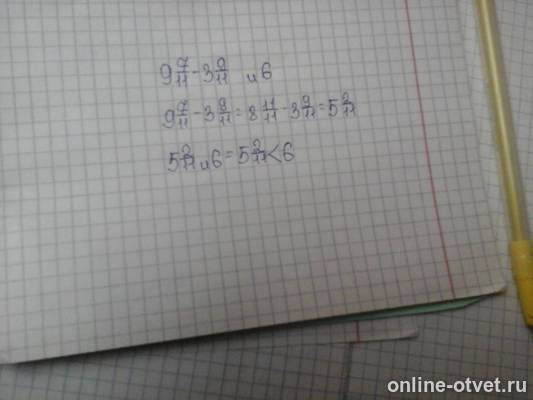 9 7/11 - 3 9/11 и 6
9 7/11 - 3 9/11 = 8 11/11 - 3 9/11 = 5 2/11
5 2/11 и 6 = 5 2/11 < 6
online-otvet.ru